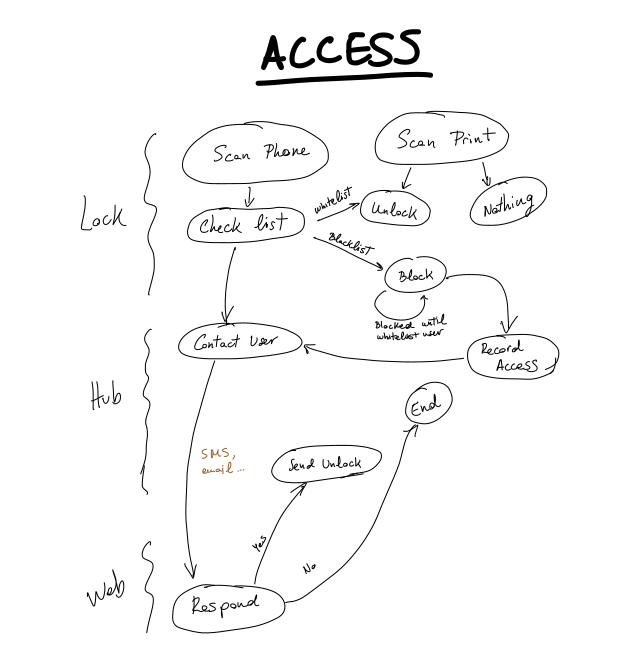 ACCESS
Scan Phone
Scan Print
Lock
Check list
whitelist
Unlock
Nothing
Blacklist
Block
Blocked until
whitelist user
Contact User
Record
Access
Hub
End
SMS,
email...
Send Unlock
Yes
No
Web
Respond